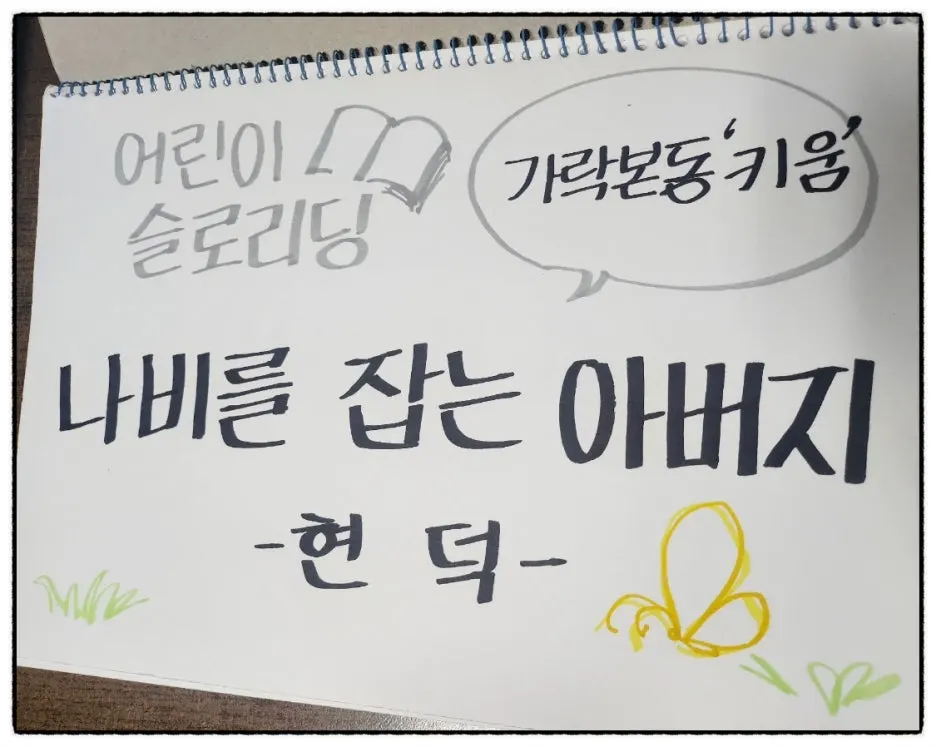 어린이
슬로리딩
가락본동 '키움'
나비를 잡는 아버지
-현 덕-